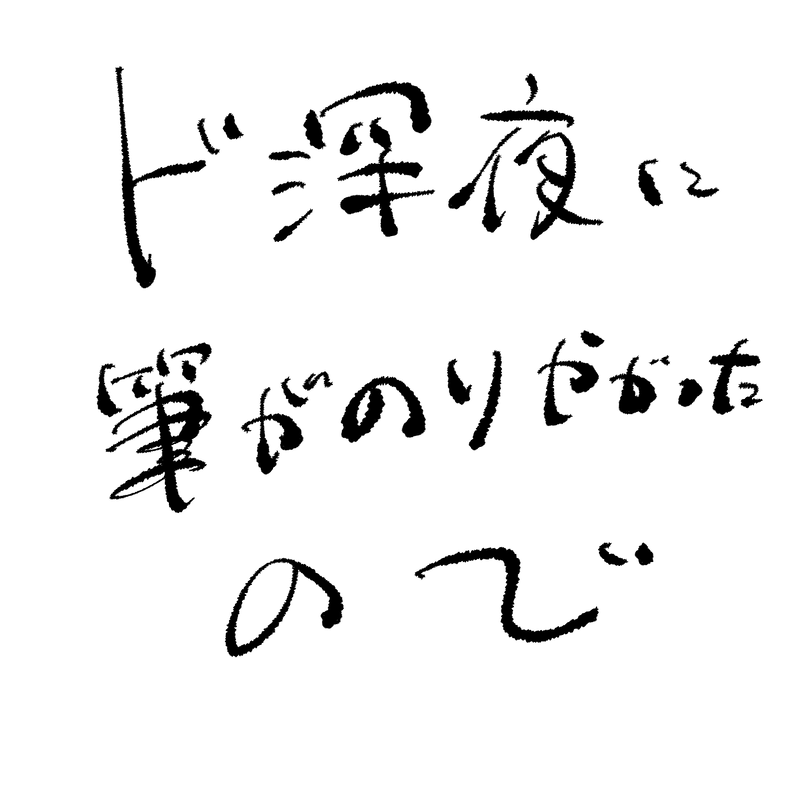 ド深夜に
筆がのりやがった
ので